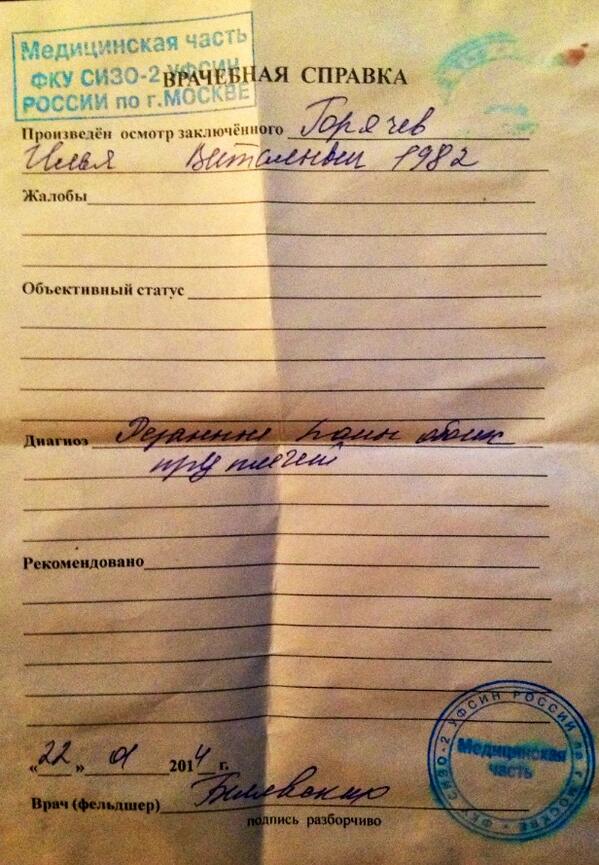 Медицинская часть
ФКУ СИЗО-2 УФСИН
РОССИИ по г.МОСКВЕ
ВРАЧЕБНАЯ СПРАВКА
Произведён осмотр заключённого Горячев
Илья 1982
Жалобы
Объективный статус
Диагноз раны обоих
Рекомендовано
«22» 2014 г.
Врач (фельдшер)
подпись разборчиво
ФКУ СИЗО-2 УФСИН РОССИИ по г. МОСКВЕ
Медицинская
часть